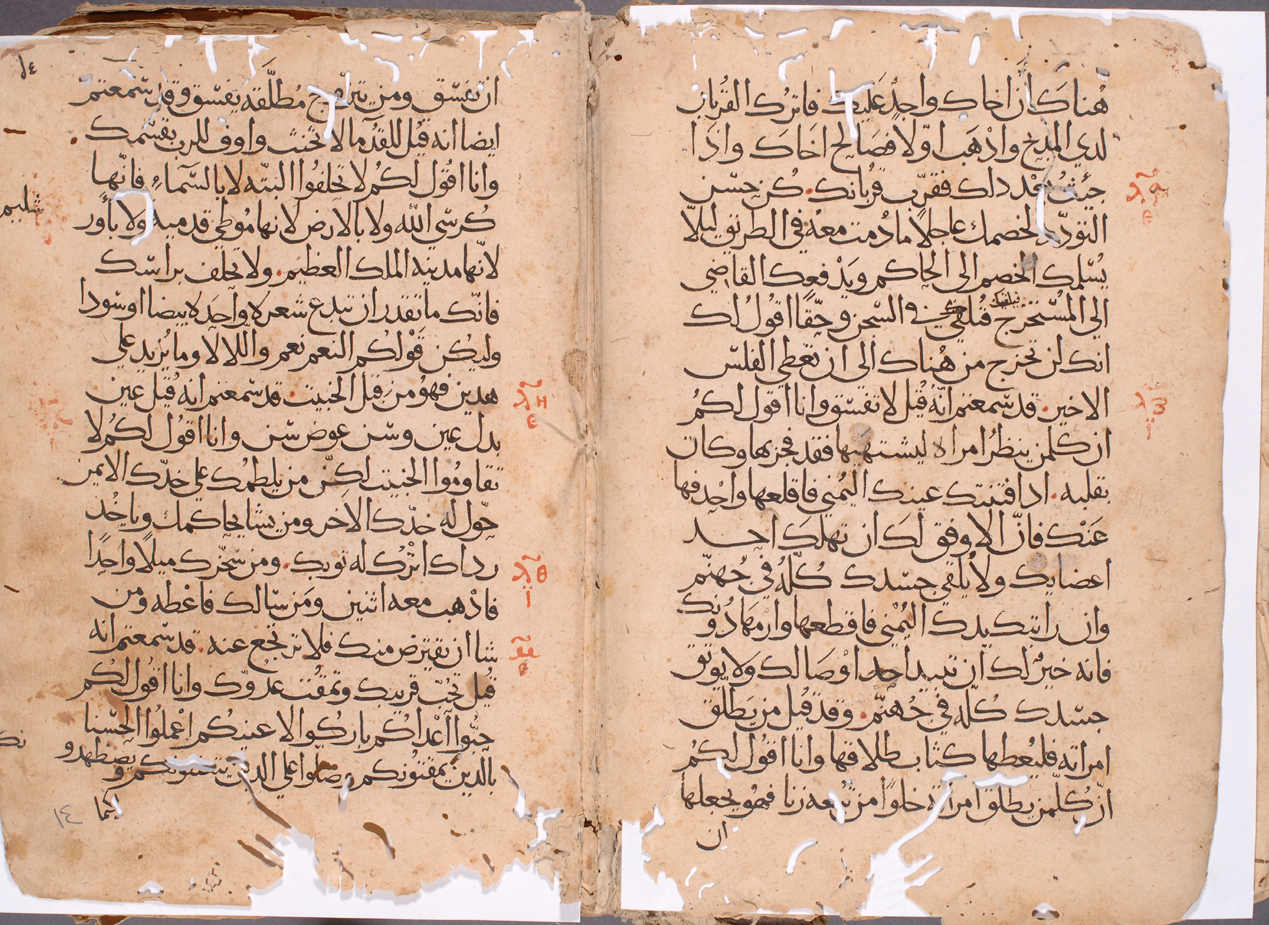 هناك أن اخاك واجد عليك فاترك القربان
لدي المذبح واذهب اولا فصالح اخاك واذا
جيت بعد ذلك فقرب قربانك. كن حسن
التودد لخصمك عاجلا ما دمت معه في الطريق ليلا
يسلمك الخصم الى الحاكم ويدفعك القاضي
الى المستخرج فتلقى في السجن وحقا اقول لك
انك لن تخرج من هناك الى ان تعطي الفلس
الاخير. قد سمعتم انه قيل لا تفسق وانا اقول لكم
ان كلمن ينظر امراة ليشتهيها فقد فجر بها وكان
بقلبه. اذا فتنتك عينك اليمنى فاقلعها واحدفها
عنك فان الاوفق لك ان تهلك احد
اعضايك ولا يلقي جسدك كله في جهنم
وان رابتك يدك اليمنى فاقطعها وارمها دونك
فانه خير لك ان تبيد احد اوصالك ولا يوثق
جسدك كله في جهنم. وقد قيل من يطلق
امراته فليعطها كتاب طلاقها وانا اقول لكم
ان كلمن يطلق امراته خلوا من تبعه زنا فهو يجعلها
ان
١٤
ان تفسق ومن يتزوج مطلقه يفسق وقد سمعتم
ايضا انه قيل للقدما لا تحنث واوف للرب بقسمك
وانا اقول لكم لا تحلفوا البته لا بالسماء فانها
كرسي الله ولا بالارض لانها موطي قدميه ولا بأور
شليم
لانها مدينه الملك العظيم. ولا تحلف براسك
فانك ما تقدر ان تبدع شعره واحده بيضا او سودا
وليكن قولكم النعم نعم واللا لا وما يزيد على
هدين فهو من قبل الخبيث. قد سمعتم انه قيل عين
بدل عين وسن عوض سن وانا اقول لكم لا
تقاوموا الخبيث لكن من يلطمك على خدك الايمن
حول له خدك الاخر ومن يشا يحاكمك وياخد
رداك اترك له توبك. ومن سخرك ميلا واحدا
فاذهب معه اثنين ومن سالك فاعطه ومن
شا ان يقترض منك فلا ترتجع عنه. قد سمعتم انه
قيل تحب قريبك وتمقت عدوك وانا اقول لكم
حبوا أعداكم باركوا لاعنيكم اعملوا الحسنا
بالذين يمقتونكم وصلوا على الذين يعنتونكم ويضطهدو
نكم
كيما
١٤